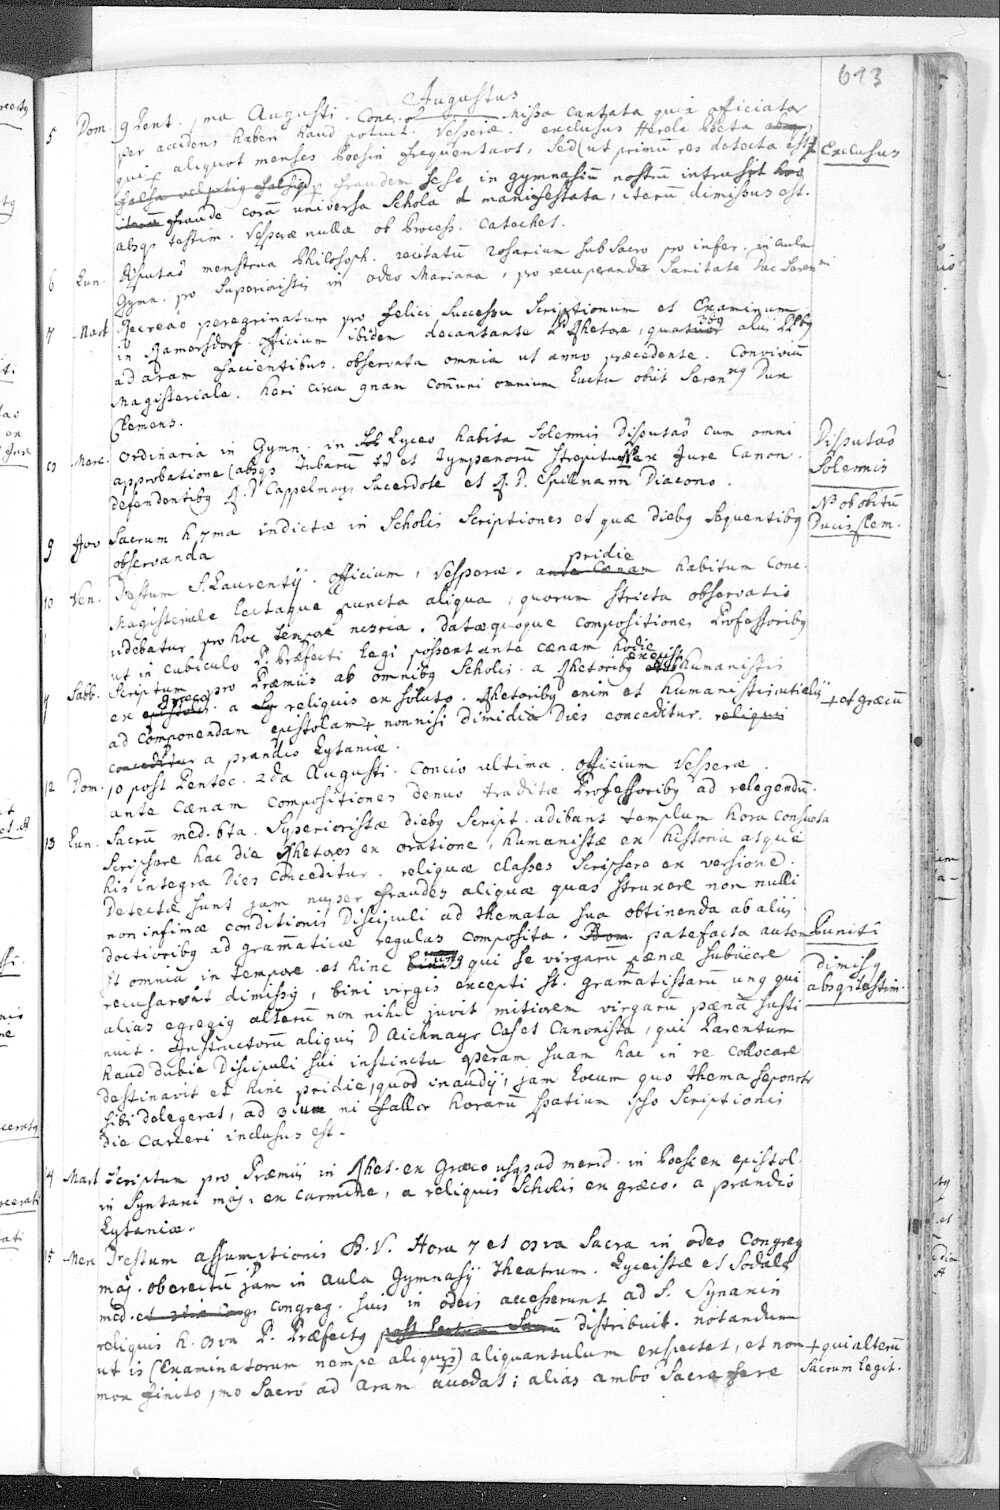 613
Augustus
5 Dom. 9 Pent. 1ma Augusti. Conc. Missa cantata quia officiator
per accidens haberi haud potuit. Vesperæ. exclusus Herele Poeta
qui aliquot menses Poesin frequentavit, sed (ut primũ res detecta est)
Exclusus
fraudem sese in gymnasiũ nostrũ intrusit
fraude corã universa Schola manifestata, iterũ dimissus est.
absq testim. Vesperæ nullæ ob Process. Catechet.
6 Lun. Disputaõ menstrua Philosoph. recitatũ rosarium sub Sacro pro infer. in aula
Gymn. pro Superioristis in odeo Mariano, pro recuperanda Sanitate Duc. Seren
7 Mart. Recreaõ peregrinatum pro felici Successu Scriptionum et Examinum
in Ramersdorf. officium ibidem decantante P. Rhetore, quatuor aliis PPbg
ad aram facientibus. observata omnia ut anno præcedente. Convivium
Magisteriale. heri circa 9nam com̃uni omnium luctu obiit Seren Dux
Clemens.
8 Merc. Ordinaria in Gymn. in Lyceo habita Solemnis Disputaõ cum omni
Disputaõ
Solemnis
approbatione (absq tubarũ et tympanorũ strepitu) ex Jure Canon.
N. ob obitũ
Ducis Clem.
defendentibg R. D. Cappelmayr Sacerdote et R. D. Spillmann Diacono.
9 Jov. Sacrum h. 7ma indictæ in Scholis Scriptiones et quæ diebg sequentibg
observanda
10 Ven. Festum S. Laurentij. officium, Vesperæ. pridie ante Cænam habitum Conc.
Magisteriale lectaque puncta aliqua, quorum stricta observatio
videbatur pro hoc tempore necesria. Datæ quoque compositiones Professoribg
ut in cubiculo P. Præfecti legi possent ante cænam hodie
11 Sabb. Scriptum pro Præmiis ab omnibg Scholis. a Rhetoribg et Humanistis
ex græco. a reliquis ex soluto. Rhetoribg enim et humanistis
+ et græcũ
ad componendam epistolam + nonnisi dimidia Dies conceditur. reliquis
conceditur a prandio Lytaniæ.
12 Dom. 10 post Pentec. 2da Augusti. Concio ultima. officium Vesperæ.
ante cænam compositiones denuo traditæ Professoribg ad relegendũ.
13 Lun. Sacrũ med. 6ta. Syperioristæ diebg Script. adibant templum hora consueta
Scripsere hac die Rhetores ex oratione, humanistæ ex historia atque
his integra Dies conceditur. reliquæ classes Scripsere ex versione.
Detectæ sunt jam nuper fraudes aliquæ quas struxere non nulli
non infimæ conditionis Discipuli ad themata sua obtinenda ab aliis
doctioribg ad gram̃aticæ regulas composita. patefacta autem
Puniti
st omnia in tempore et hinc qui se virgarũ pænæ subiicere
recusarunt dimissi, bini virgis excepti st. gram̃atistarũ ung qui
Dimissg
absq testim.
alias egregig alterũ non nihil juvit mitiorem virgarũ pænã susti
nuit. Instructorũ aliquis D Aichmayr Cas. et Canonista, qui Parentum
haud dubie Discipuli sui instinctu operam suam hac in re collocare
destinavit et hinc pridie, quod inaudij, jam locum quo thema seponeret
sibi delegerat, ad 3ium ni fallor horarũ spatium ipso Scriptionis
die Carceri inclusus est.
14 Mart. Scriptum pro Præmiis in Rhet. ex Græco usq ad merid. in Poesi ex epistol.
in Syntaxi maj. ex carmine, a reliquis Scholis ex græco. a prandio
Lytaniæ.
15 Merc. Festum assumptionis B. V. Hora 7 et 8va Sacra in odeo Congreg
maj. ob erectũ jam in aula Gymnasij theatrum. Lyceistæ et Sodales
med. et congreg. suis in odeis accesserunt ad S. Synaxin
reliquis h. 8va P. Præfectg post lectum Sacrũ distribuit. notandum
ut is (Examinatorum nempe aliquis) aliquantulum exspectet, et non
+ qui alterũ
Sacrum legit.
mox finito 1mo Sacro ad aram + accedat; alias ambo Sacra fere